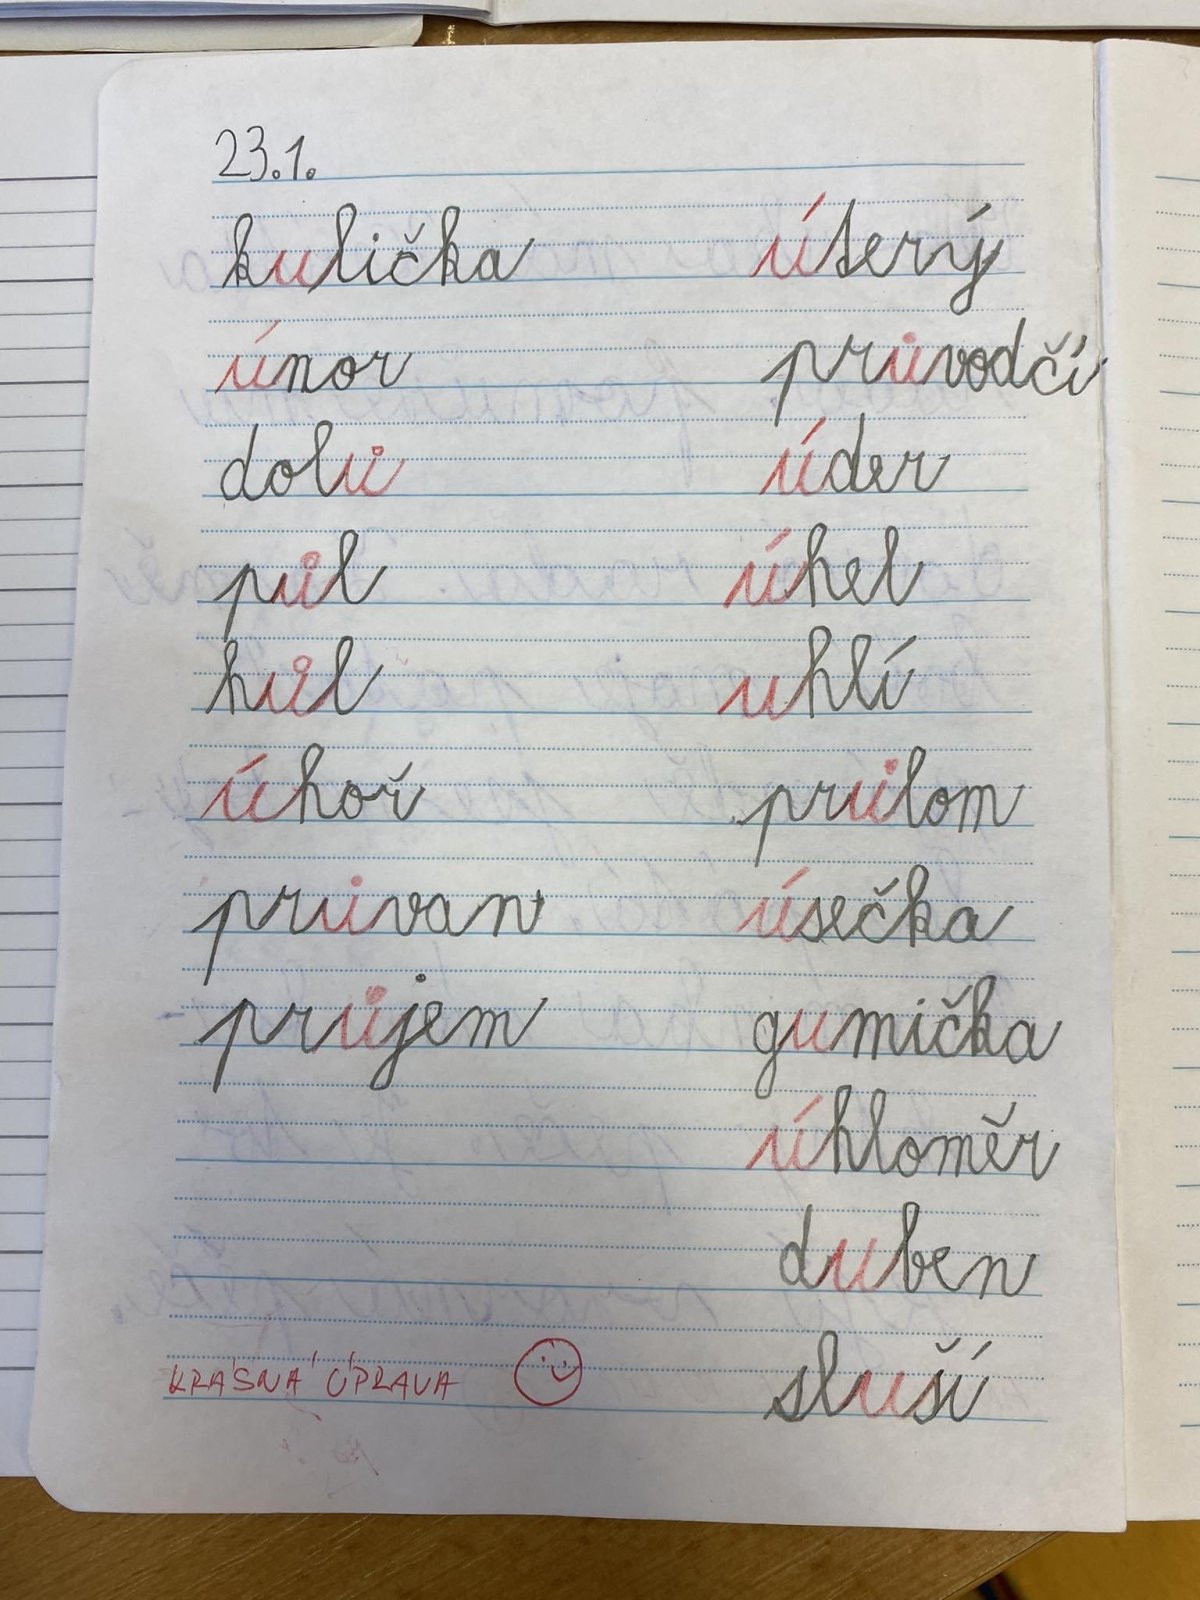 23.1.
kulička
únor
dolů
půl
hůl
úhoř
průvan
průjem
KRÁSNÁ ÚPRAVA
úterý
průvodčí
úder
úhel
uhlí
průlom
úsečka
gumička
úhloměr
duben
sluší